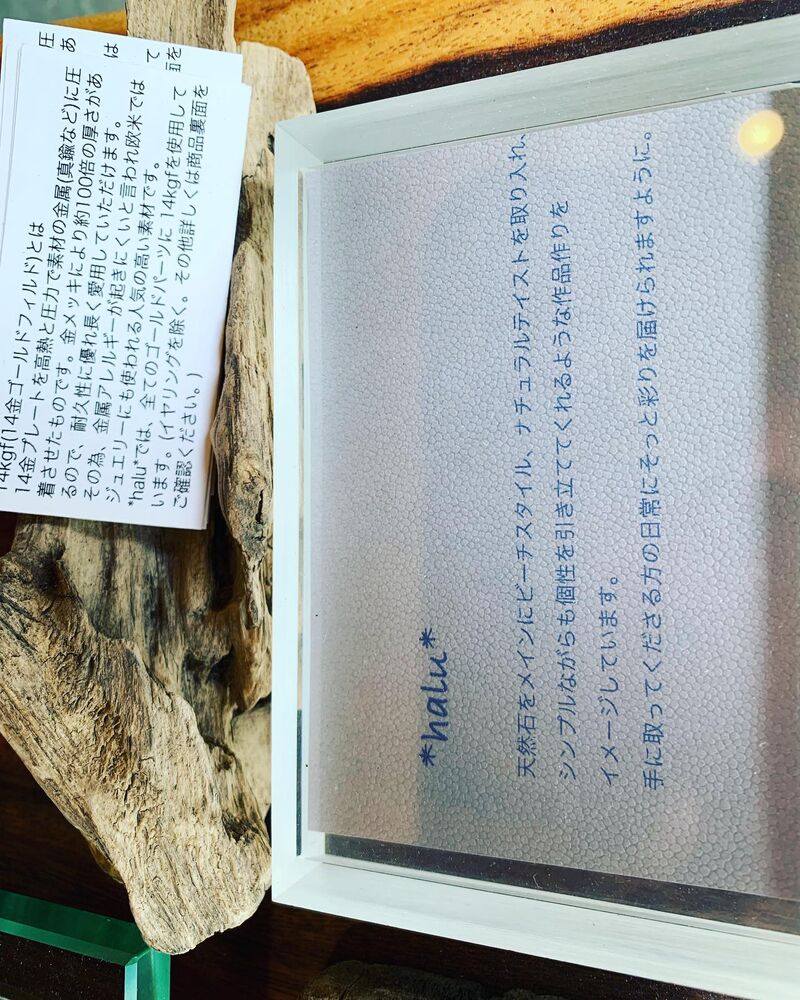 14kgf(14金ゴールドフィルド)とは
14金プレートを高熱と圧力で素材の金属(真鍮など)に圧
着させたものです。金メッキにより約100倍の厚さがあ
るので、耐久性に優れ長く愛用していただけます。
その為、金属アレルギーが起きにくいと言われ欧米では
ジュエリーにも使われる人気の高い素材です。
*halu*では、全てのゴールドパーツに14kgfを使用して
います。(イヤリングを除く。その他詳しくは商品裏面を
ご確認ください。)
圧
あ
は
て
面を
*halu*
天然石をメインにビーチスタイル、ナチュラルテイストを取り入れ、
シンプルながらも個性を引き立ててくれるような作品作りを
イメージしています。
手に取ってくださる方の日常にそっと彩りを届けられますように。